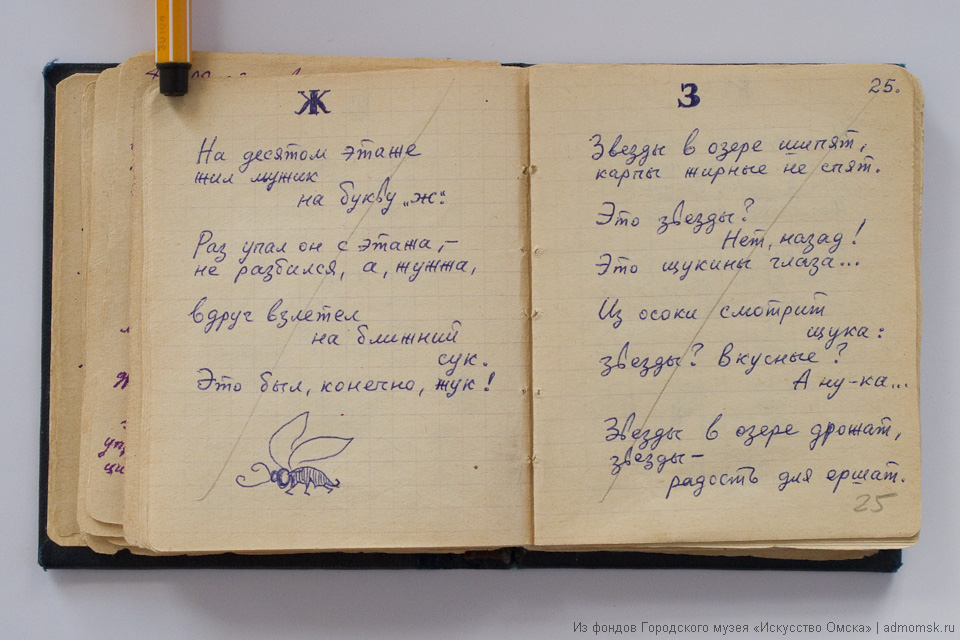 Ж
На десятом этаже
жил мужик
на букву „ж".
Раз упал он с этажа, –
не разбился, а, жужжа,
вдруг взлетел
на ближний
сук.
Это был, конечно, жук!
З
25.
Звезды в озере шипят,
карпы жирные не спят.
Это звезды?
Нет, назад!
Это щукины глаза...
Из осоки смотрит
щука:
звезды? Вкусные?
А ну-ка...
Звезды в озере дрожат,
звезды–
радость для ершат.
25
Из фондов Городского музея «Искусство Омска» | admomsk.ru